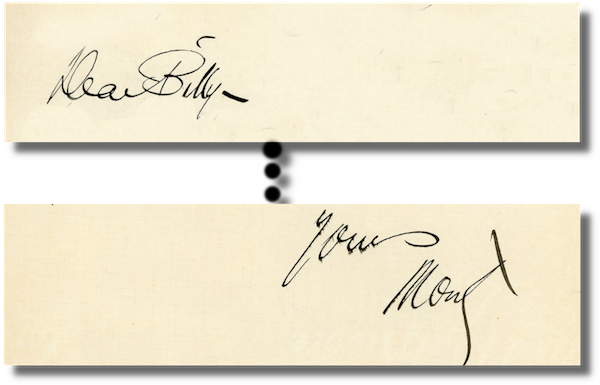 Dear Billy–
Yours
Mont